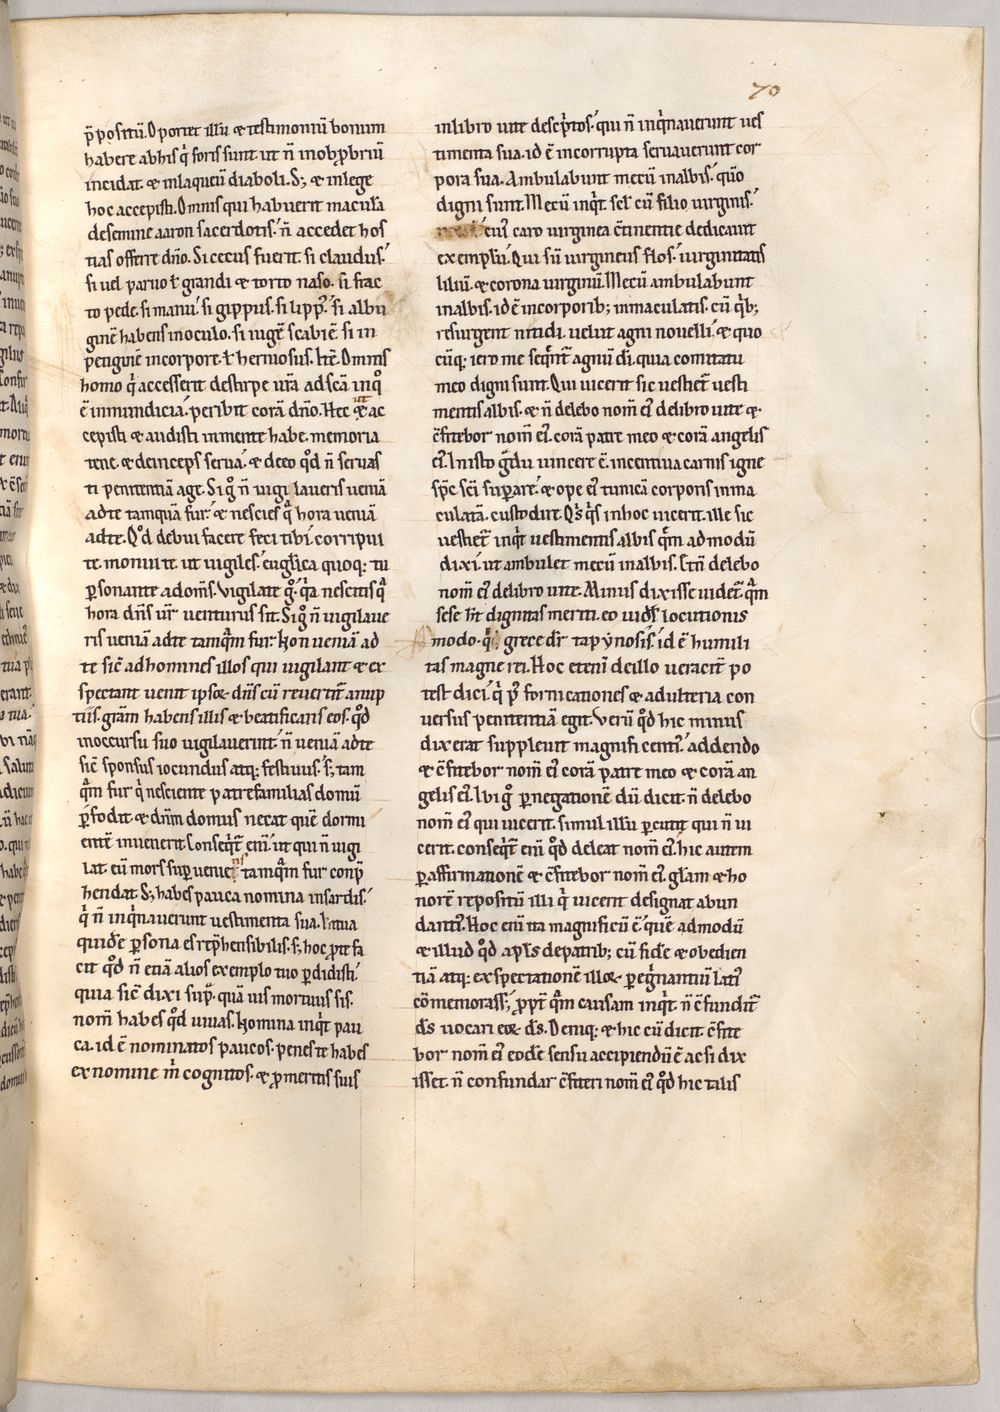 70
p̄positū. Oportet illū & testimoniū bonum
habere abhis q̇ foris sunt ut n̄ inobprbriū
incidat. & inlaqueū diaboli. S; & inlege
hoc accepisti. Omnis qui habuerit maculā
desemine aaron sacerdotis. n̄ accedet hos
tias offerre dn̄o. Si cecus fuerit. si claudus.
si vel paruo ł grandi & torto naso. si frac
to pede. si manu. si gippus. si lipp'. si albu
ginē habens inoculo. si iugē scabiē si in
petiginē incorpore. ł herniosus. Itē. Omnis
homo q̇ accesserit destirpe ur̄a adscā inq'
ē inmundicia. peribit corā dn̄o. Hec ut & ac
cepisti & audisti inmente habe. memoria
tene. & deinceps serua. & de eo qd̄ n̄ seruas
ti penitentiā age. Si g° n̄ uigilaueris ueniā
adte tamquā fur. & nescies q̄ hora ueniā
adte. Qd̄ debui facere feci tibi. corripui
te. monui te. ut uigiles. euglica quoq; tu
psonante adom̄s. Vigilate g°. q̇a nescitis q̄
hora dn̄s ur̄ uenturus sit. Si g° n̄ uigilaue
ris ueniā adte tamq̄m fur. Non ueniā ad
te sic̄ adhomines illos qui uigilant & ex
spectant uenit ipsoꝝ dn̄s cū reuertit̄ anup
tiis. gr̄am habens illis & beatificans eos. qd̄
inoccursu suo uigilauerint. n̄ ueniā adte
sic̄ sponsus iocundus atq; festiuus. s; tam
q̄m fur q̇ nesciente patrefamilias domū
pfodit & dn̄m domus necat quē dormi
entē inuenerit. Conseq̇t̄ eni. ut qui n̄ uigi
lat. eū mors sup ueniens tamq̄m fur conp̄
hendat. S; habes pauca nomina insardis.
q̇ n̄ inq̇nauerunt uestimenta sua. In tua
quidē psona es rep̄hensibilis. s; hoc p̄ te fa
cit qd̄ n̄ etiā alios exemplo tuo pdidisti.
quia sic̄ dixi sup̄. quā uis mortuus sis.
nom̄ habes qd̄ uiuas. Nomina inq̇t pau
ca. id ē nominatos paucos. penes te habes
ex nomine m̄ cognitos. & pmeritis suis
inlibro uite descṗtos. qui n̄ inq̇nauerunt ues
timenta sua. id ē incorrupta seruauerunt cor
pora sua. Ambulabunt mecū inalbis. quō
digni sunt. Mecū inq̇t. scł cū filio uirginis.
cui' caro uirginea c̄tinentie dedicauit
exemplū. Qui sū uirgineus flos. uirginitatis
liliū. & corona uirginū. Mecū ambulabunt
inalbis. id ē incorporib; inmaculatis. cū q̇b;
resurgent nitidi. uelut agni nouelli. & quo
cūq; iero me seq̄nt̄ agnū dī. quia comitatu
meo digni sunt. Qui uicerit sic uestiet̄ uesti
mentis albis. & n̄ delebo nom̄ ei' delibro uite &
c̄fitebor nom̄ ei'. corā patre meo & corā angelis
ei'. In isto gdu uincere ē. incentiua carnis igne
sp̄c scī supare. & ope ei' tunicā corporis inma
culatā. custodire. Q's q̇s inhoc uicerit. ille sic
uestiet̄ inq̇t uestimentis albis q̄m admodū
dixi. ut ambulet mecū inalbis. Et n̄ delebo
nom̄ ei' delibro uite. Minus dixisse uidet̄ q̄m
sese h̄t dignitas meriti. eo uidł locutionis
modo. q̇ grece dr̄ tapynosis. id ē humili
tas magne rei. Hoc etenī deillo ueracit̄ po
test dici. q̇ p' fornicationes & adulteria con
uersus penitentiā egit. Verū qd̄ hic minus
dixerat suppleuit magnificenti'. addendo
& c̄fitebor nom̄ ei' corā patre meo & corā an
gelis ei'. Ibi g° pnegationē dū dicit. n̄ delebo
nom̄ ei' qui uicerit. simul illū pcutit qui n̄ ui
cerit. conseq̇t̄ enī qd̄ deleat nom̄ ei'. hic autem
paffirmationē & c̄fitebor nom̄ ei'. gl̄am & ho
norē repositū illi q̇ uicerit designat abun
danti'. Hoc enī ita magnificū ē. quē admodū
& illud qd̄ apl̄s depatrib; cū fidē & obedien
tiā atq; exspectationē illoꝝ pegnantiū lati'
cōmemorasset; propt̄ q̄m causam inq̇t. n̄ c̄fundit̄
ds̄ uocari eoꝝ ds̄. Deniq; & hic cū dicit c̄fite
bor nom̄ ei' eodē sensu accipiendū ē acsi dix
isset. n̄ confundar c̄fiteri nom̄ ei' qd̄ hic talis